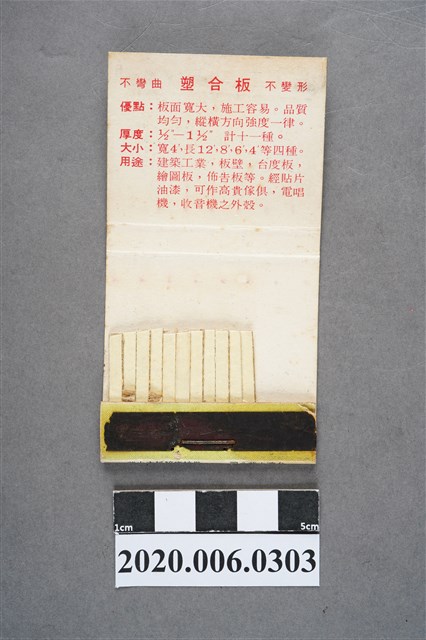 不彎曲 塑合板 不變形
優點：板面寬大，施工容易。品質
均勻，縱橫方向強度一律。
厚度：⅛"—1½" 計十一種。
大小：寬4'，長12'，8'，6'，4'等四種。
用途：建築工業，板壁，台度板，
繪圖板，佈告板等。經貼片
油漆，可作高貴傢俱，電唱
機，收音機之外殼。
1cm 5cm
2020.006.0303